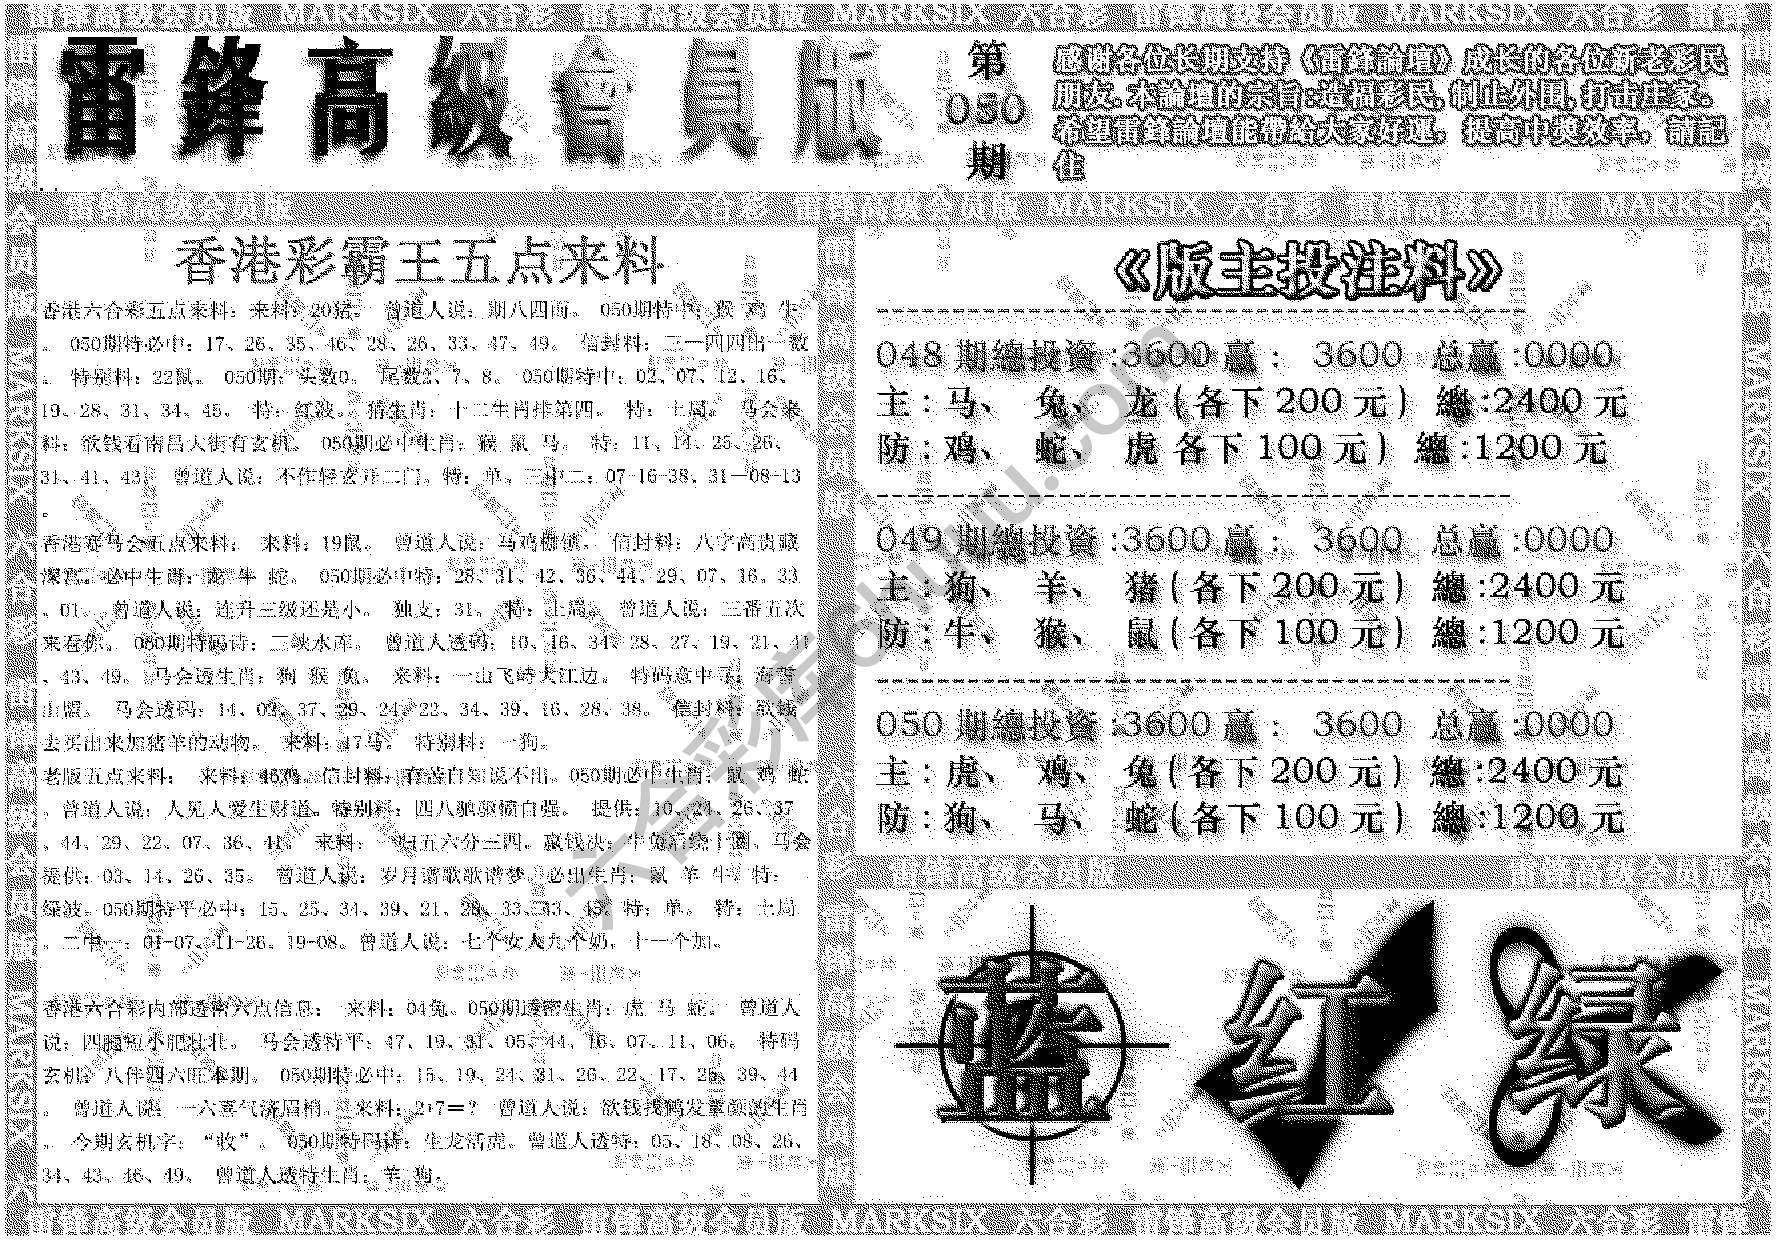 雷鋒高級會員版
第
050
期
感谢各位长期支持《雷鋒論壇》成长的各位新老彩民
朋友.本論壇的宗旨:造福彩民,制止外围,打击庄家。
希望雷鋒論壇能帶給大家好運。提高中獎效率。請記
住
香港彩霸王五点来料
香港六合彩五点来料：来料：20猪。 曾道人说：期八四面。 050期特中：猴 鸡 牛
。 050期特必中：17、26、35、46、28、26、33、47、49。 信封料：三一四四出一数
。 特别料：22鼠。 050期：头数0。 尾数2、7、8。 050期特中：02、07、12、16、
19、28、31、34、45。 特：红波。 猜生肖：十二生肖排第四。 特：土局。 马会来
料：欲钱看南昌大街有玄机。 050期必中生肖：猴 鼠 马。 特：11、14、25、26、
31、41、43。 曾道人说：不作轻玄开二门。特：单。三中二：07-16-38、31-08-13
。
香港赛马会五点来料： 来料：19鼠。 曾道人说：马鸡 信封料：八字高贵藏
深宫。必中生肖：龙 牛 蛇。 050期必中特：28、31、42、36、44、29、07、16、33
、01。 曾道人说：连升三级还是小。 独支：31。 特：土局。 曾道人说：三番五次
来看你。 050期特码诗：三峡水库。 曾道人透码：10、16、34、28、27、19、21、41
、43、49。 马会透生肖：狗 猴 兔。 来料：一山飞峙大江边。 特码意中寻：海誓
山盟。 马会透码：14、02、37、29、24、22、34、39、16、28、38。 信封料：欲钱
去买出来加猪羊的动物。 来料：47马。 特别料：一狗。
老版五点来料： 来料：46鸡。信封料：有苦自知说不出。050期必中生肖：鼠 鸡 蛇
。曾道人说：人见人爱生财道。特别料：四八驰骋慎自强。 提供：10、24、26、37
、44、29、22、07、36、41。 来料：一归五六分三四。赢钱决：牛兔后绕十圈。马会
提供：03、14、26、35。 曾道人说：岁月谱歌歌谱梦。必出生肖：鼠 羊 牛。特：
绿波。050期特平必中：15、25、34、39、21、28、33、43、45。特：单。 特：土局
。二中一：01-07、11-26、19-08。曾道人说：七个女人九个奶，十一个加。
香港六合彩内部透密六点信息： 来料：04兔。050期透密生肖：虎 马 蛇。 曾道人
说：四腿短小肥壮壮。 马会透特平：47、19、31、05、44、16、07、11、06。 特码
玄机：八件四六旺本期。 050期特必中：15、19、24、31、26、22、17、28、39、44
。 曾道人说：一六喜气济眉梢。 来料：2+7＝？ 曾道人说：欲钱找鹤发童颜的生肖
。 今期玄机字：“收”。 050期特码诗：生龙活虎。曾道人透特：05、18、08、26、
34、43、46、49。 曾道人透特生肖：羊 狗。
《版主投注料》
048期總投資:3600 赢： 3600 总赢:0000
主:马、 兔、 龙(各下200元) 總:2400元
防:鸡、 蛇、 虎 各下100元) 總:1200元
049期總投資:3600 赢： 3600 总赢:0000
主:狗、 羊、 猪(各下200元) 總:2400元
防:牛、 猴、 鼠(各下100元) 總:1200元
050期總投資:3600 赢： 3600 总赢:0000
主:虎、 鸡、 兔(各下200元) 總:2400元
防:狗、 马、 蛇(各下100元) 總:1200元
蓝 红 绿